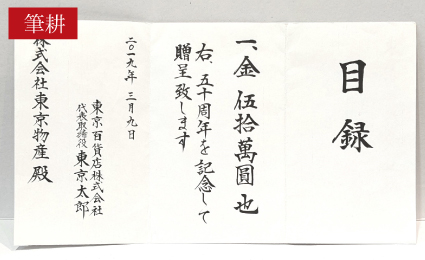 筆耕
目録
一、金 伍拾萬圓也
右、五十周年を記念して
贈呈致します
二〇一九年 三月九日
東京百貨店株式会社
代表取締役 東京太郎
株式会社東京物産 殿